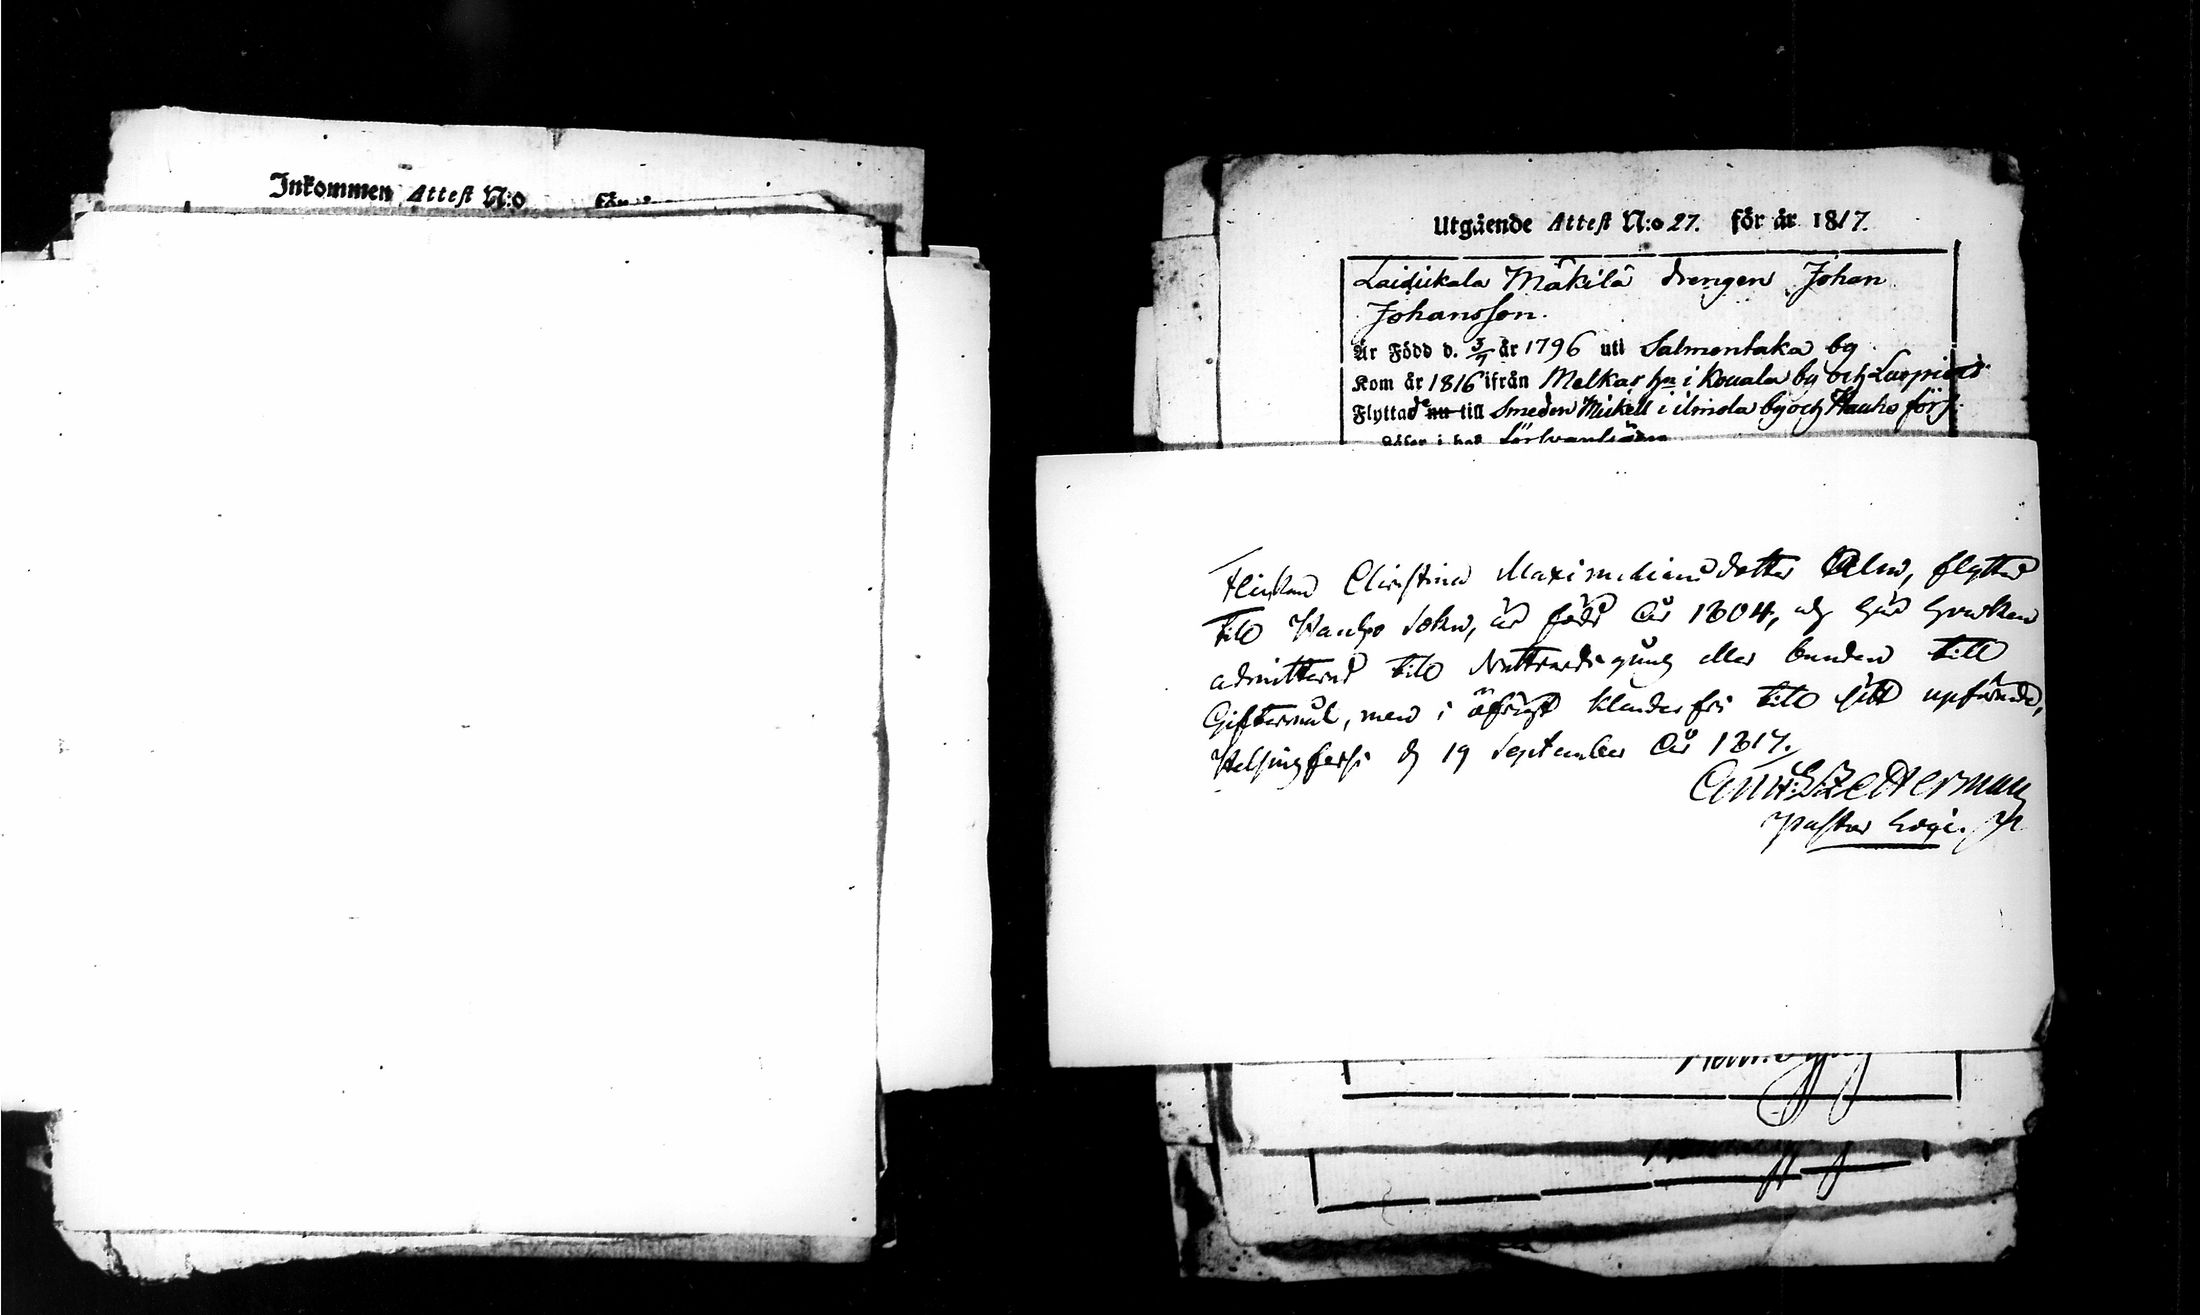 Inkommen Attest N:o för
Utgående Attest N:o 27. för år 1817.
Laidickala Mäkilä drengen Johan
Johansson.
Är Född d. 3/7 år 1796 uti Salmentaka by
Kom år 1816 ifrån Melkas hn i Kouala by och
Flyttade nu till Smeden Mickell i ilmola by och Hauho förs.
Läser i bok
Flickan Christina Maximiliansdotter Alm, flyttar
till Hauho Sokn, är född år 1804, och har hvarken
admitterad till Nattvardsgång eller bunden till
Giftermål, men i öfrigt klanderfri till sitt upförande,
Helsingfors d 19 September år 1817.
Zetterman
Pastor